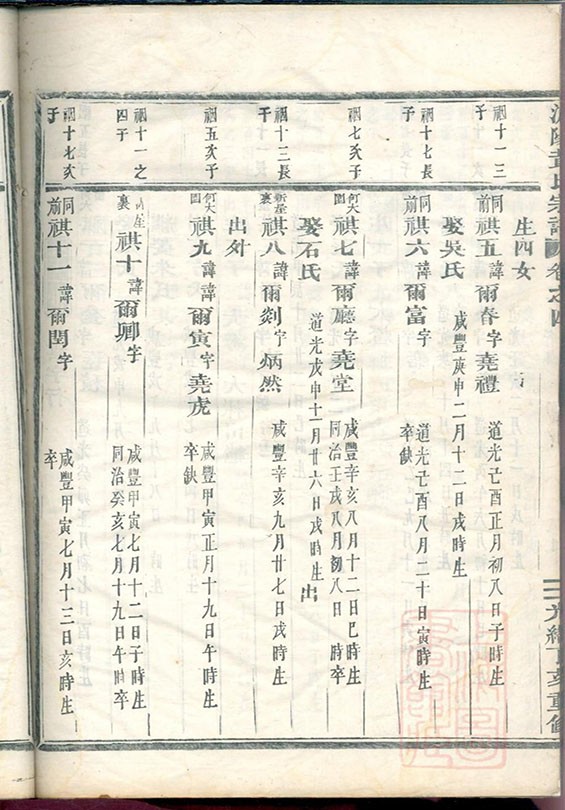 氏宗譜 卷之四
光緒丁亥重修
生四女
祠十一三子
同前 祺五 諱爾春 字堯禮
道光己酉正月初八日子時生
娶吳氏
咸豐庚申二月十二日戌時生
祠十七長子
同前 祺六 諱爾富 字
道光己酉八月二十日寅時生
卒缺
祠七次子
祺七 諱爾廳 字堯堂
咸豐辛亥八月十二日巳時生
同治壬戌八月初八日 時卒
娶石氏
道光戊申十一月廿六日戌時生 出
祠十三長子
祺八 諱爾剡 字炳然
咸豐辛亥九月廿七日戌時生
出外
祠五次子
祺九 諱爾寅 字堯虎
咸豐甲寅正月十九日午時生
卒缺
祠十一之四子
祺十 諱爾卿 字
咸豐甲寅七月十二日子時生
同治癸亥七月十九日午時卒
祠十七次子
同前 祺十一 諱爾閏 字
咸豐甲寅七月十三日亥時生
卒